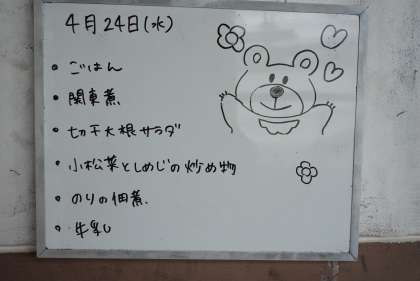 4月24日(水)
・ごはん
・関東煮
・切干大根サラダ
・小松菜としめじの炒め物
・のりの佃煮
・牛乳